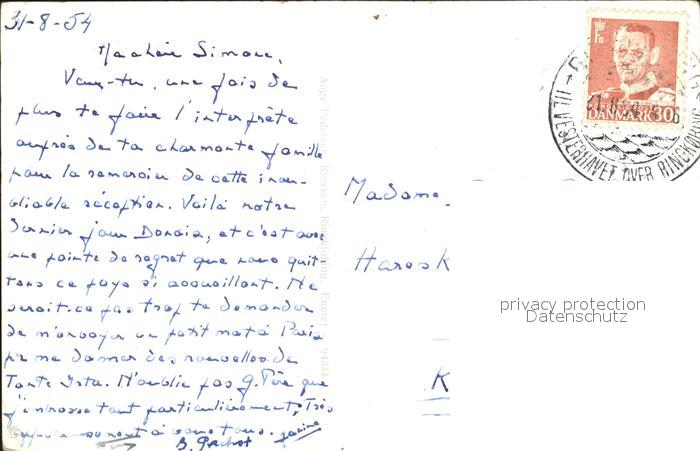 31-8-54
Ma chère Simone,
Veux-tu, une fois de
plus te faire l'interprète
auprès de ta charmante famille
pour la remercier de cette inou-
bliable réception. Voilà notre
dernier jour Danois, et c'est avec
une pointe de regret que nous quit-
tons ce pays si accueillant. Ne
serait-ce pas trop te demander
de m'envoyer un petit mot à Paris
pr me donner des nouvelles de
Tante Ista. N'oublie pas G. Père que
j'embrasse tout particulièrement, Très
à vous tous. Janine
B. Pachot
Madame
Haresk
K
DANMARK 30
TIL VESTERHAVET OVER RINGKØBING
privacy protection
Datenschutz